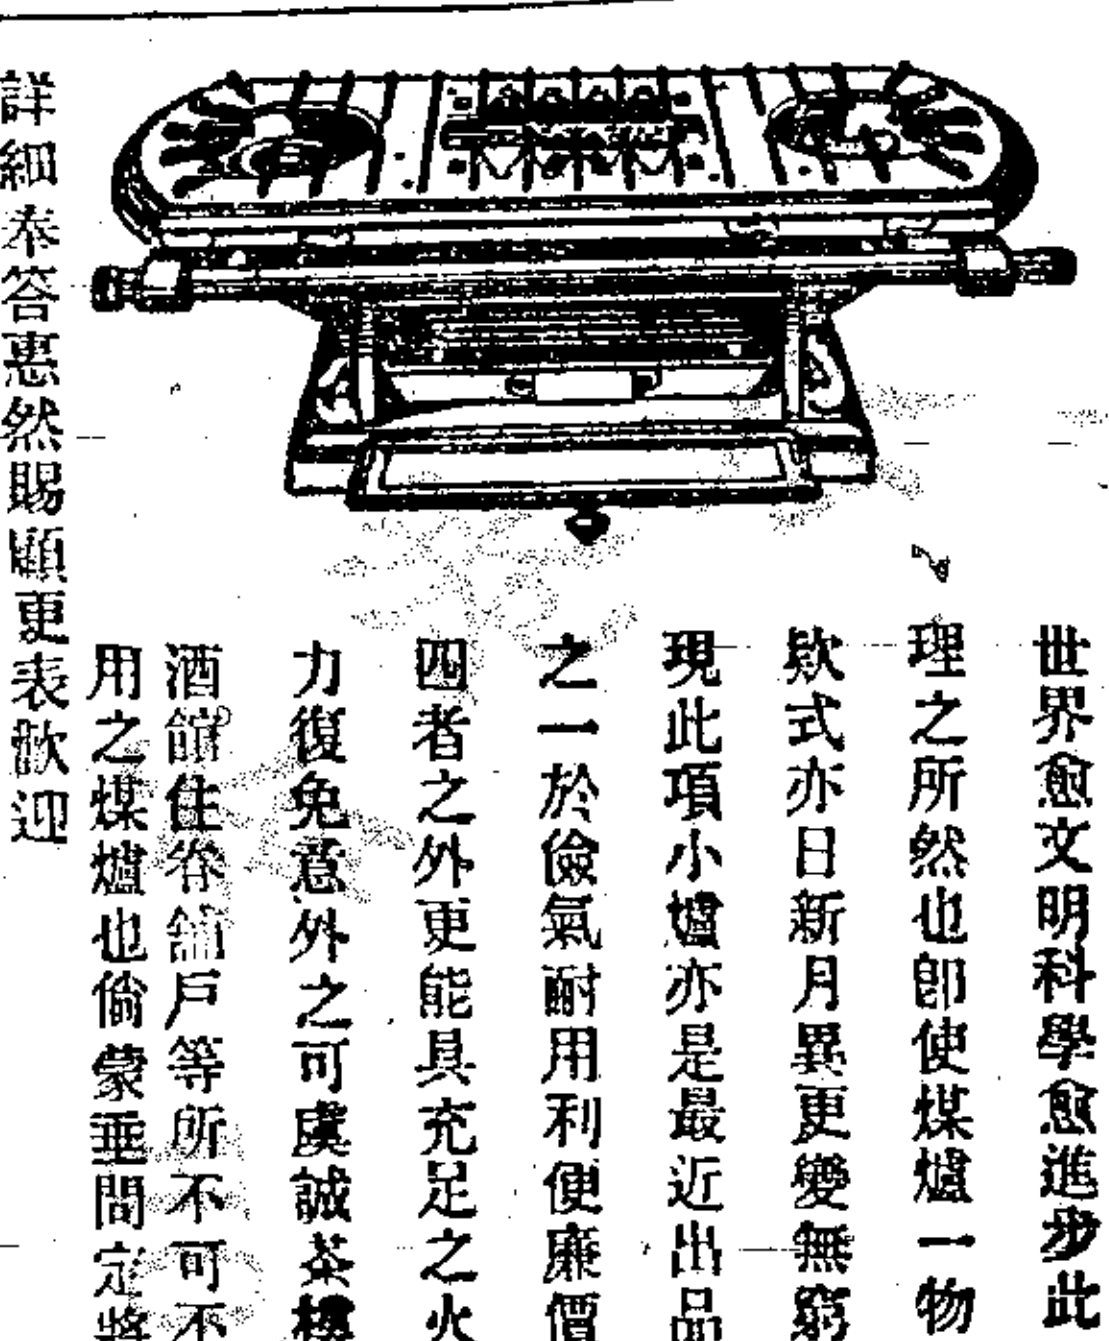 世界愈文明科學愈進步此
理之所然也卽使煤爐一物
欵式亦日新月異更變無窮
現此項小爐亦是最近出品
之一於儉氣耐用利便廉價
四者之外更能具充足之火
力復免意外之可虞誠茶樓
酒館住眷舖戶等所不可不
用之煤爐也倘蒙垂問定將
詳細奉答惠然賜顧更表歡迎